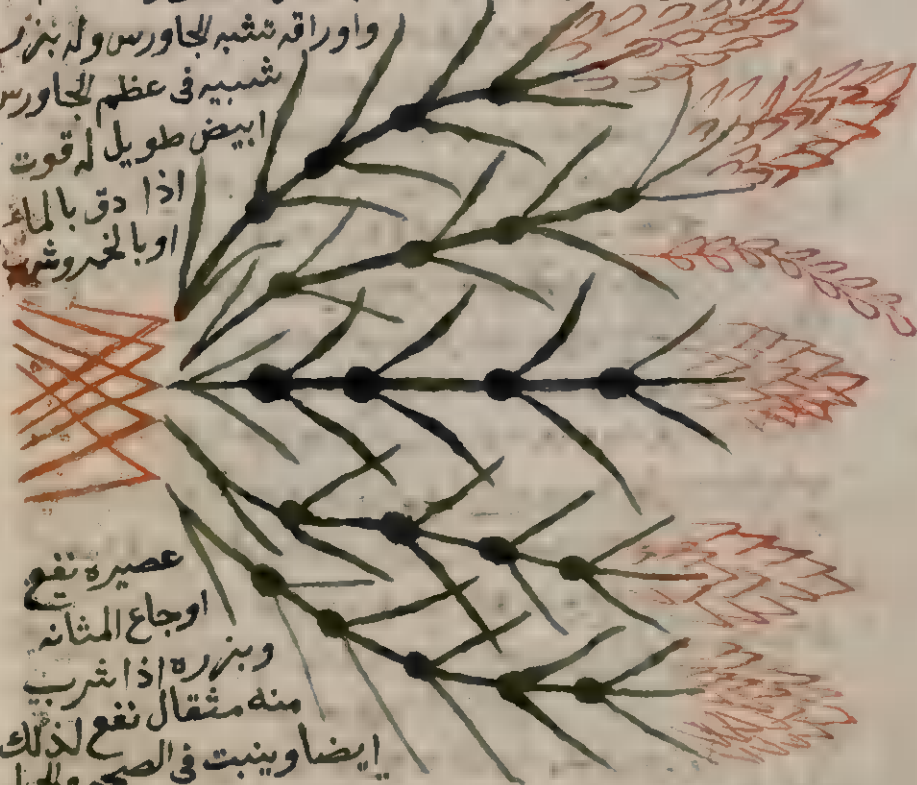 واوراقه تشبه الجاورس وله بزر
شبيه في عظم الجاورس
ابيض طويل له قوت
اذا دق بالماء
اوبالخمر وشرب
عصيره نفع
اوجاع المثانه
وبزره اذا شرب
منه مثقال نفع لذلك
ايضا وينبت في الصحرو